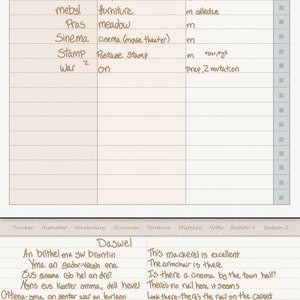 mebyl furniture m collective
Pras meadow m
Sinema cinema (movie theater) m
Stamp Postage stamp m
War 2 on Prep, 2 mutation
Tracker Alphabet Vocabulary Grammar Sentence Mistakes Notes Section 1 Section 2
Daswel
An brithel ma yw brentin This mackerel is excellent
Yma an gador-vregh ena
Eus sinema rib hel an dre? Is there a cinema by the town hall?
Nyns eus kenter omma, dell hevel There's no nail here, it seems
Ottena, an genter war an leurlenn Look there-there's the nail on the carpet